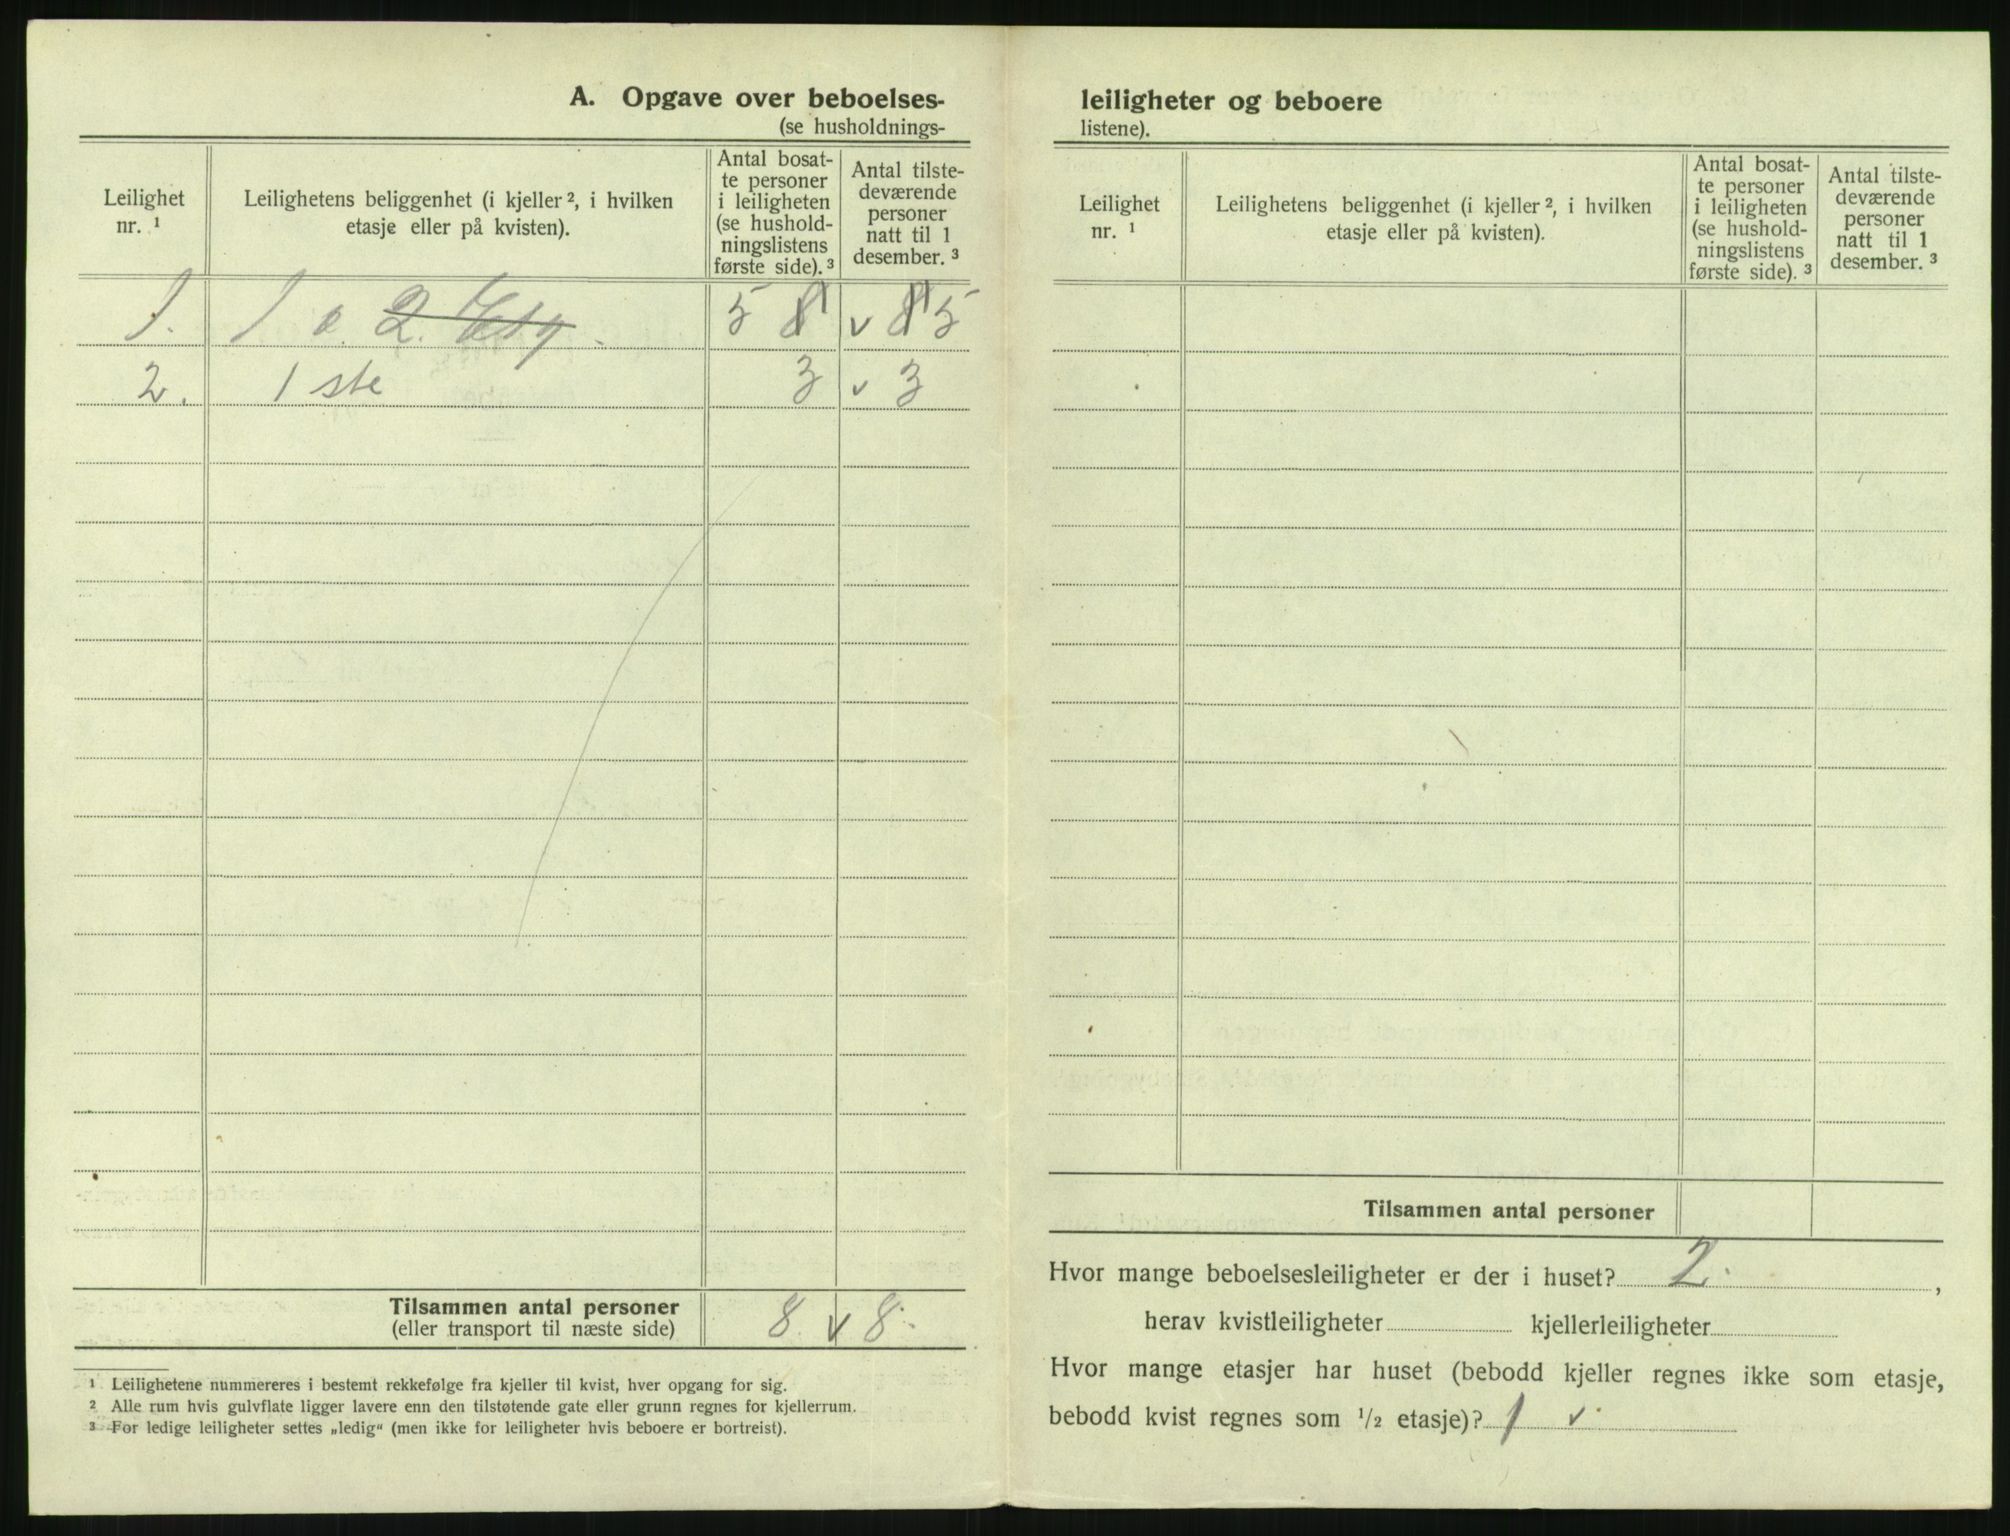 A. Opgave over beboelses-
(se husholdnings-
Leilighet
nr. ¹
Leilighetens beliggenhet (i kjeller ², i hvilken
etasje eller på kvisten).
Antal bosat-
te personer
i leiligheten
(se hushold-
ningslistens
første side). ³
Antal tilste-
deværende
personer
natt til 1
desember. ³
1. 1 o. 2. Etg. 5 8 v 8 5
2. 1 ste 3 v 3
Tilsammen antal personer 8 v 8.
(eller transport til næste side)
¹ Leilighetene nummereres i bestemt rekkefølge fra kjeller til kvist, hver opgang for sig.
² Alle rum hvis gulvflate ligger lavere enn den tilstøtende gate eller grunn regnes for kjellerrum.
³ For ledige leiligheter settes „ledig“ (men ikke for leiligheter hvis beboere er bortreist).
leiligheter og beboere
listene).
Leilighet
nr. ¹
Leilighetens beliggenhet (i kjeller ², i hvilken
etasje eller på kvisten).
Antal bosat-
te personer
i leiligheten
(se hushold-
ningslistens
første side). ³
Antal tilste-
deværende
personer
natt til 1
desember. ³
Tilsammen antal personer
Hvor mange beboelsesleiligheter er der i huset? 2. ,
herav kvistleiligheter kjellerleiligheter
Hvor mange etasjer har huset (bebodd kjeller regnes ikke som etasje,
bebodd kvist regnes som ¹/₂ etasje)? 1 v